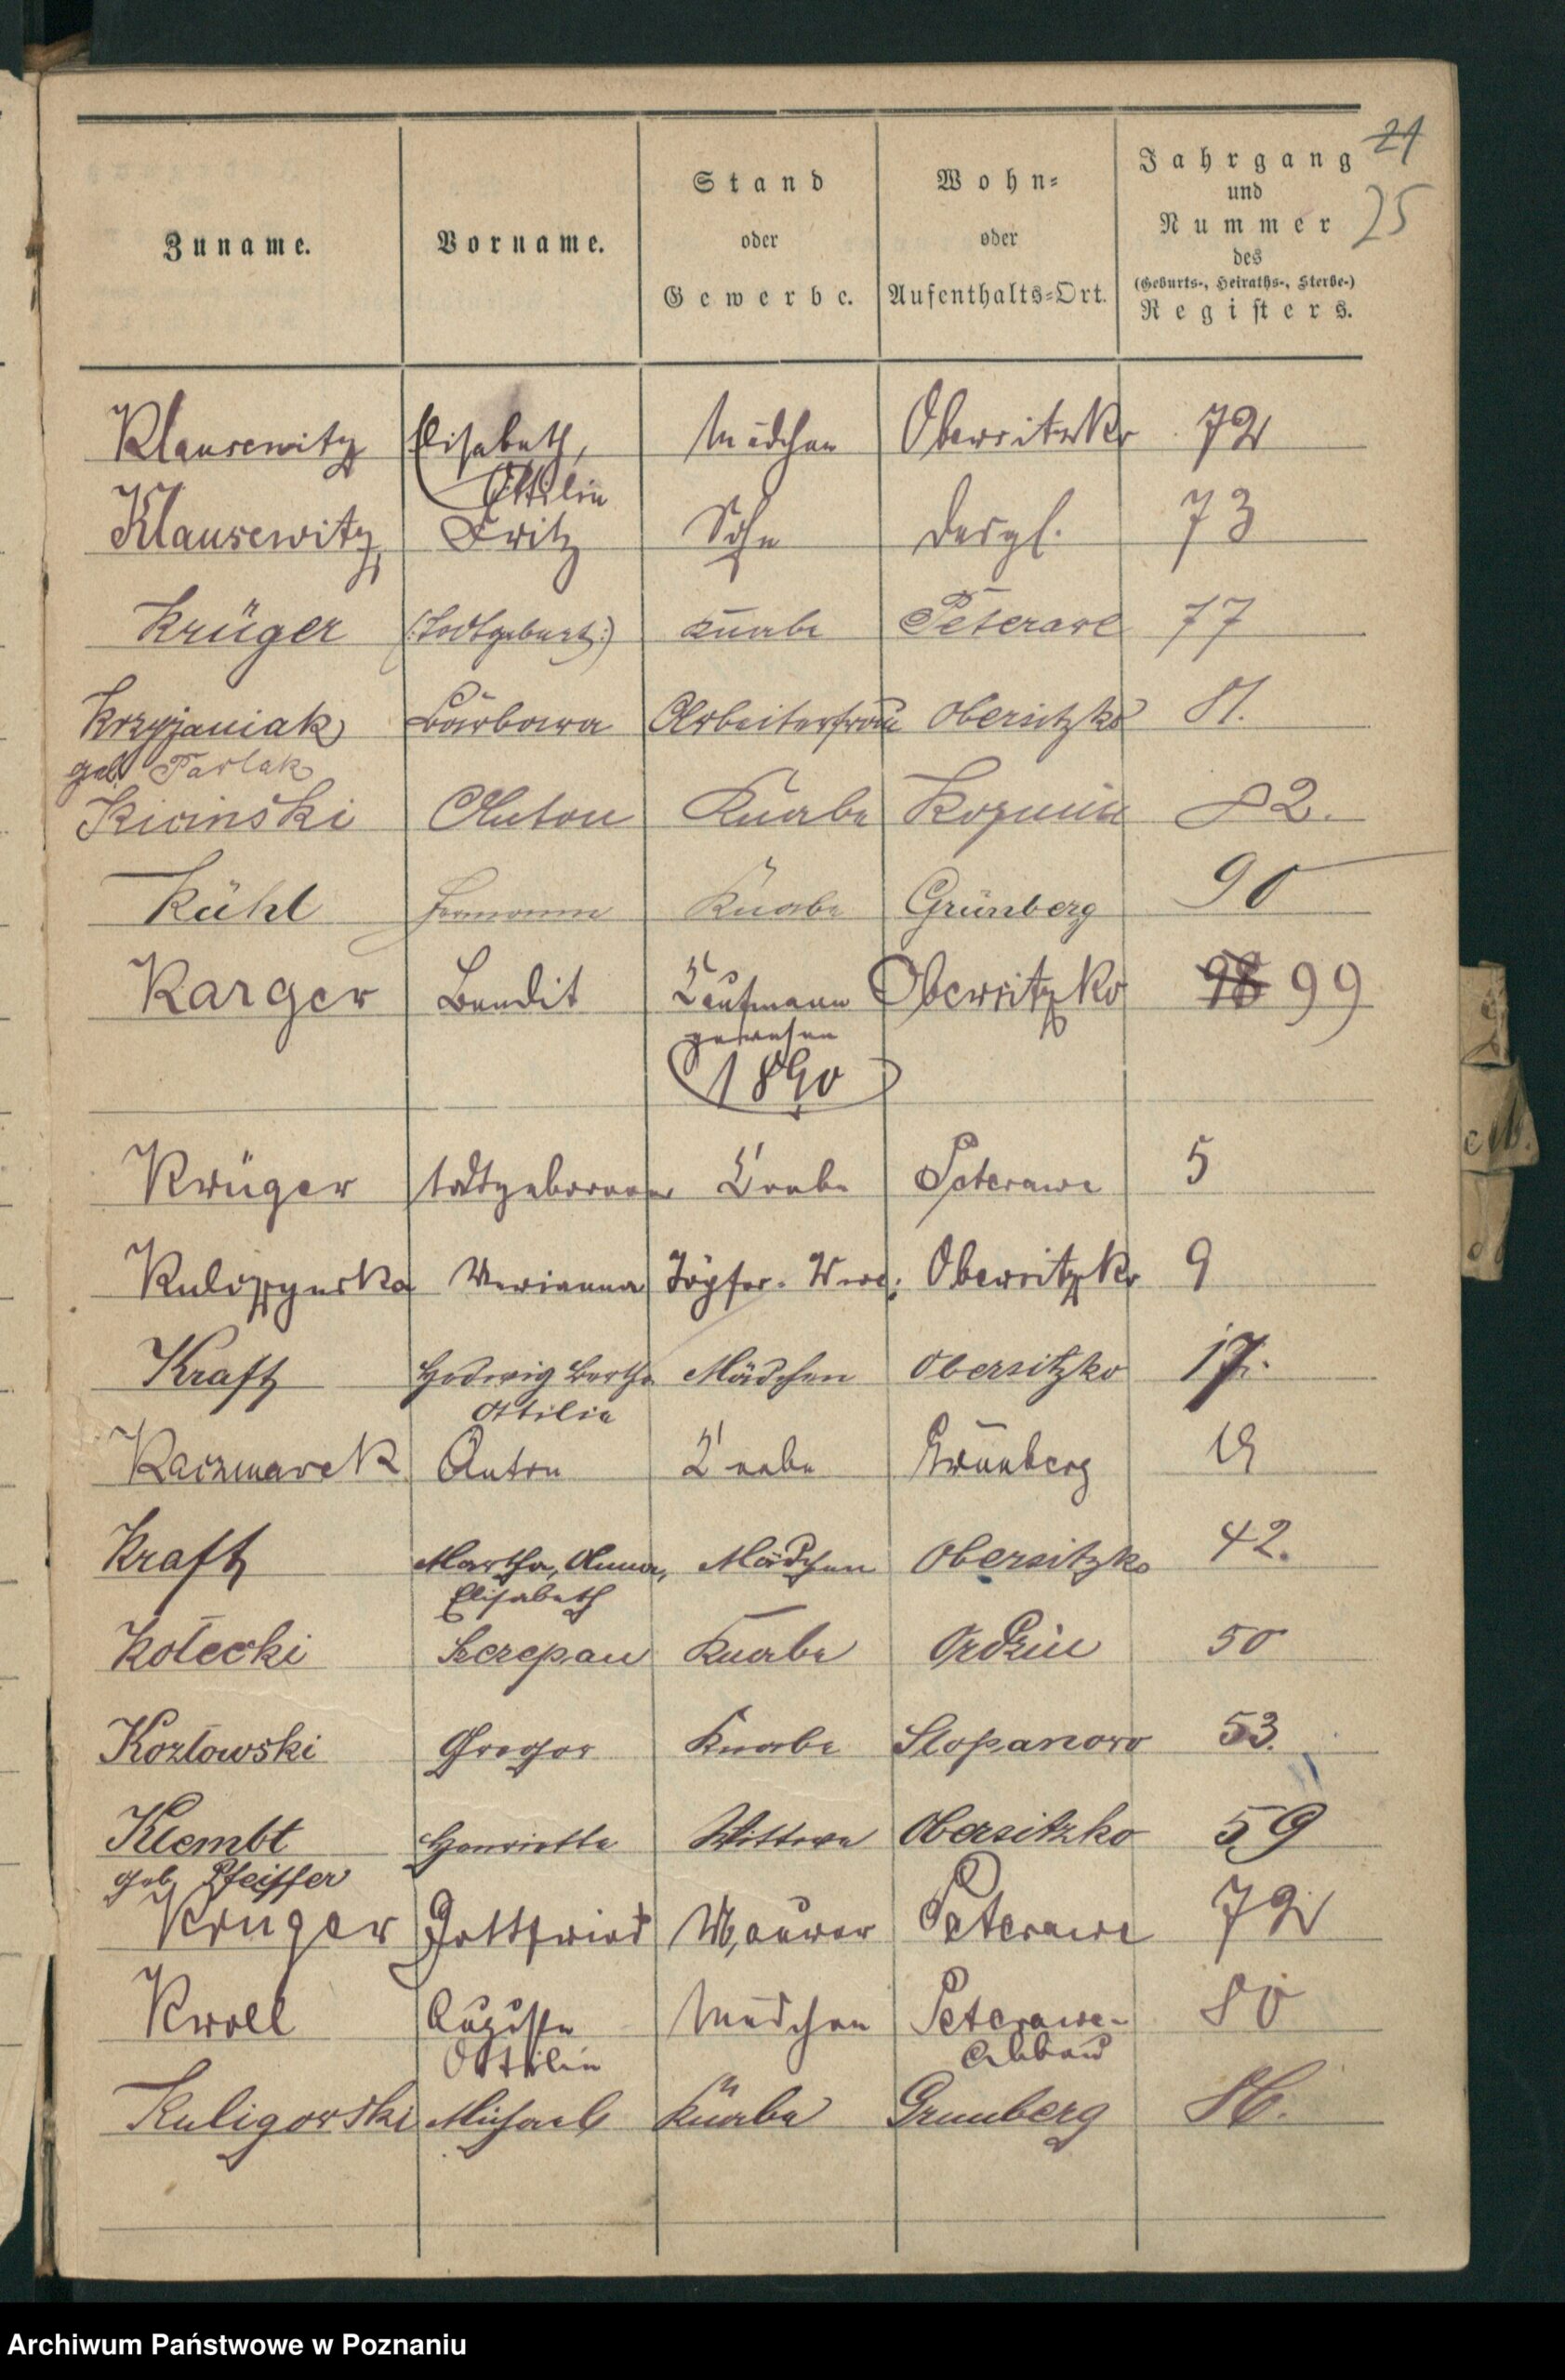 21
25
Zuname.
Vorname.
Stand
oder
Gewerbe.
Wohn-
oder
Aufenthalts-Ort.
Jahrgang
und
Nummer
des
(Geburts-, Heiraths-, Sterbe-)
Registers.
Klausewitz Elisabeth, Mädchen Obersitzko 72
Ottilie
Klausewitz Fritz Sohn desgl. 73
Krüger (:Todtgeburt:) Knabe Peterawe 77
Krzyżaniak Barbara Arbeiterfrau Obersitzko 81.
geb. Pawlak
Anton Knabe Kozmin 82.
Kühl Hermann Knabe Grünberg 90
Karger Bendit Kaufmann Obersitzko 98 99
gewesen
1890
Krüger todtgeborener Knabe Peterawe 5
Marianna Töpfer- Obersitzko 9
Kraft Hedwig Bertha Mädchen Obersitzko 17.
Ottilie
Kaczmarek Anton Knabe Grünberg 19
Kraft Martha, Anna, Mädchen Obersitzko 42.
Elisabeth
Kołecki Szczepan Knabe Ordzin 50
Kozłowski Gregor Knabe Stopanowo 53.
Klembt Henriette Wittwe Obersitzko 59
geb. Pfeiffer
Krüger Gottfried Maurer Peterawe 72
Kroll Auguste Mädchen Peterawe- 80
Ottilie Abbau
Kuligowski Michael Knabe Grünberg 86.
Archiwum Państwowe w Poznaniu